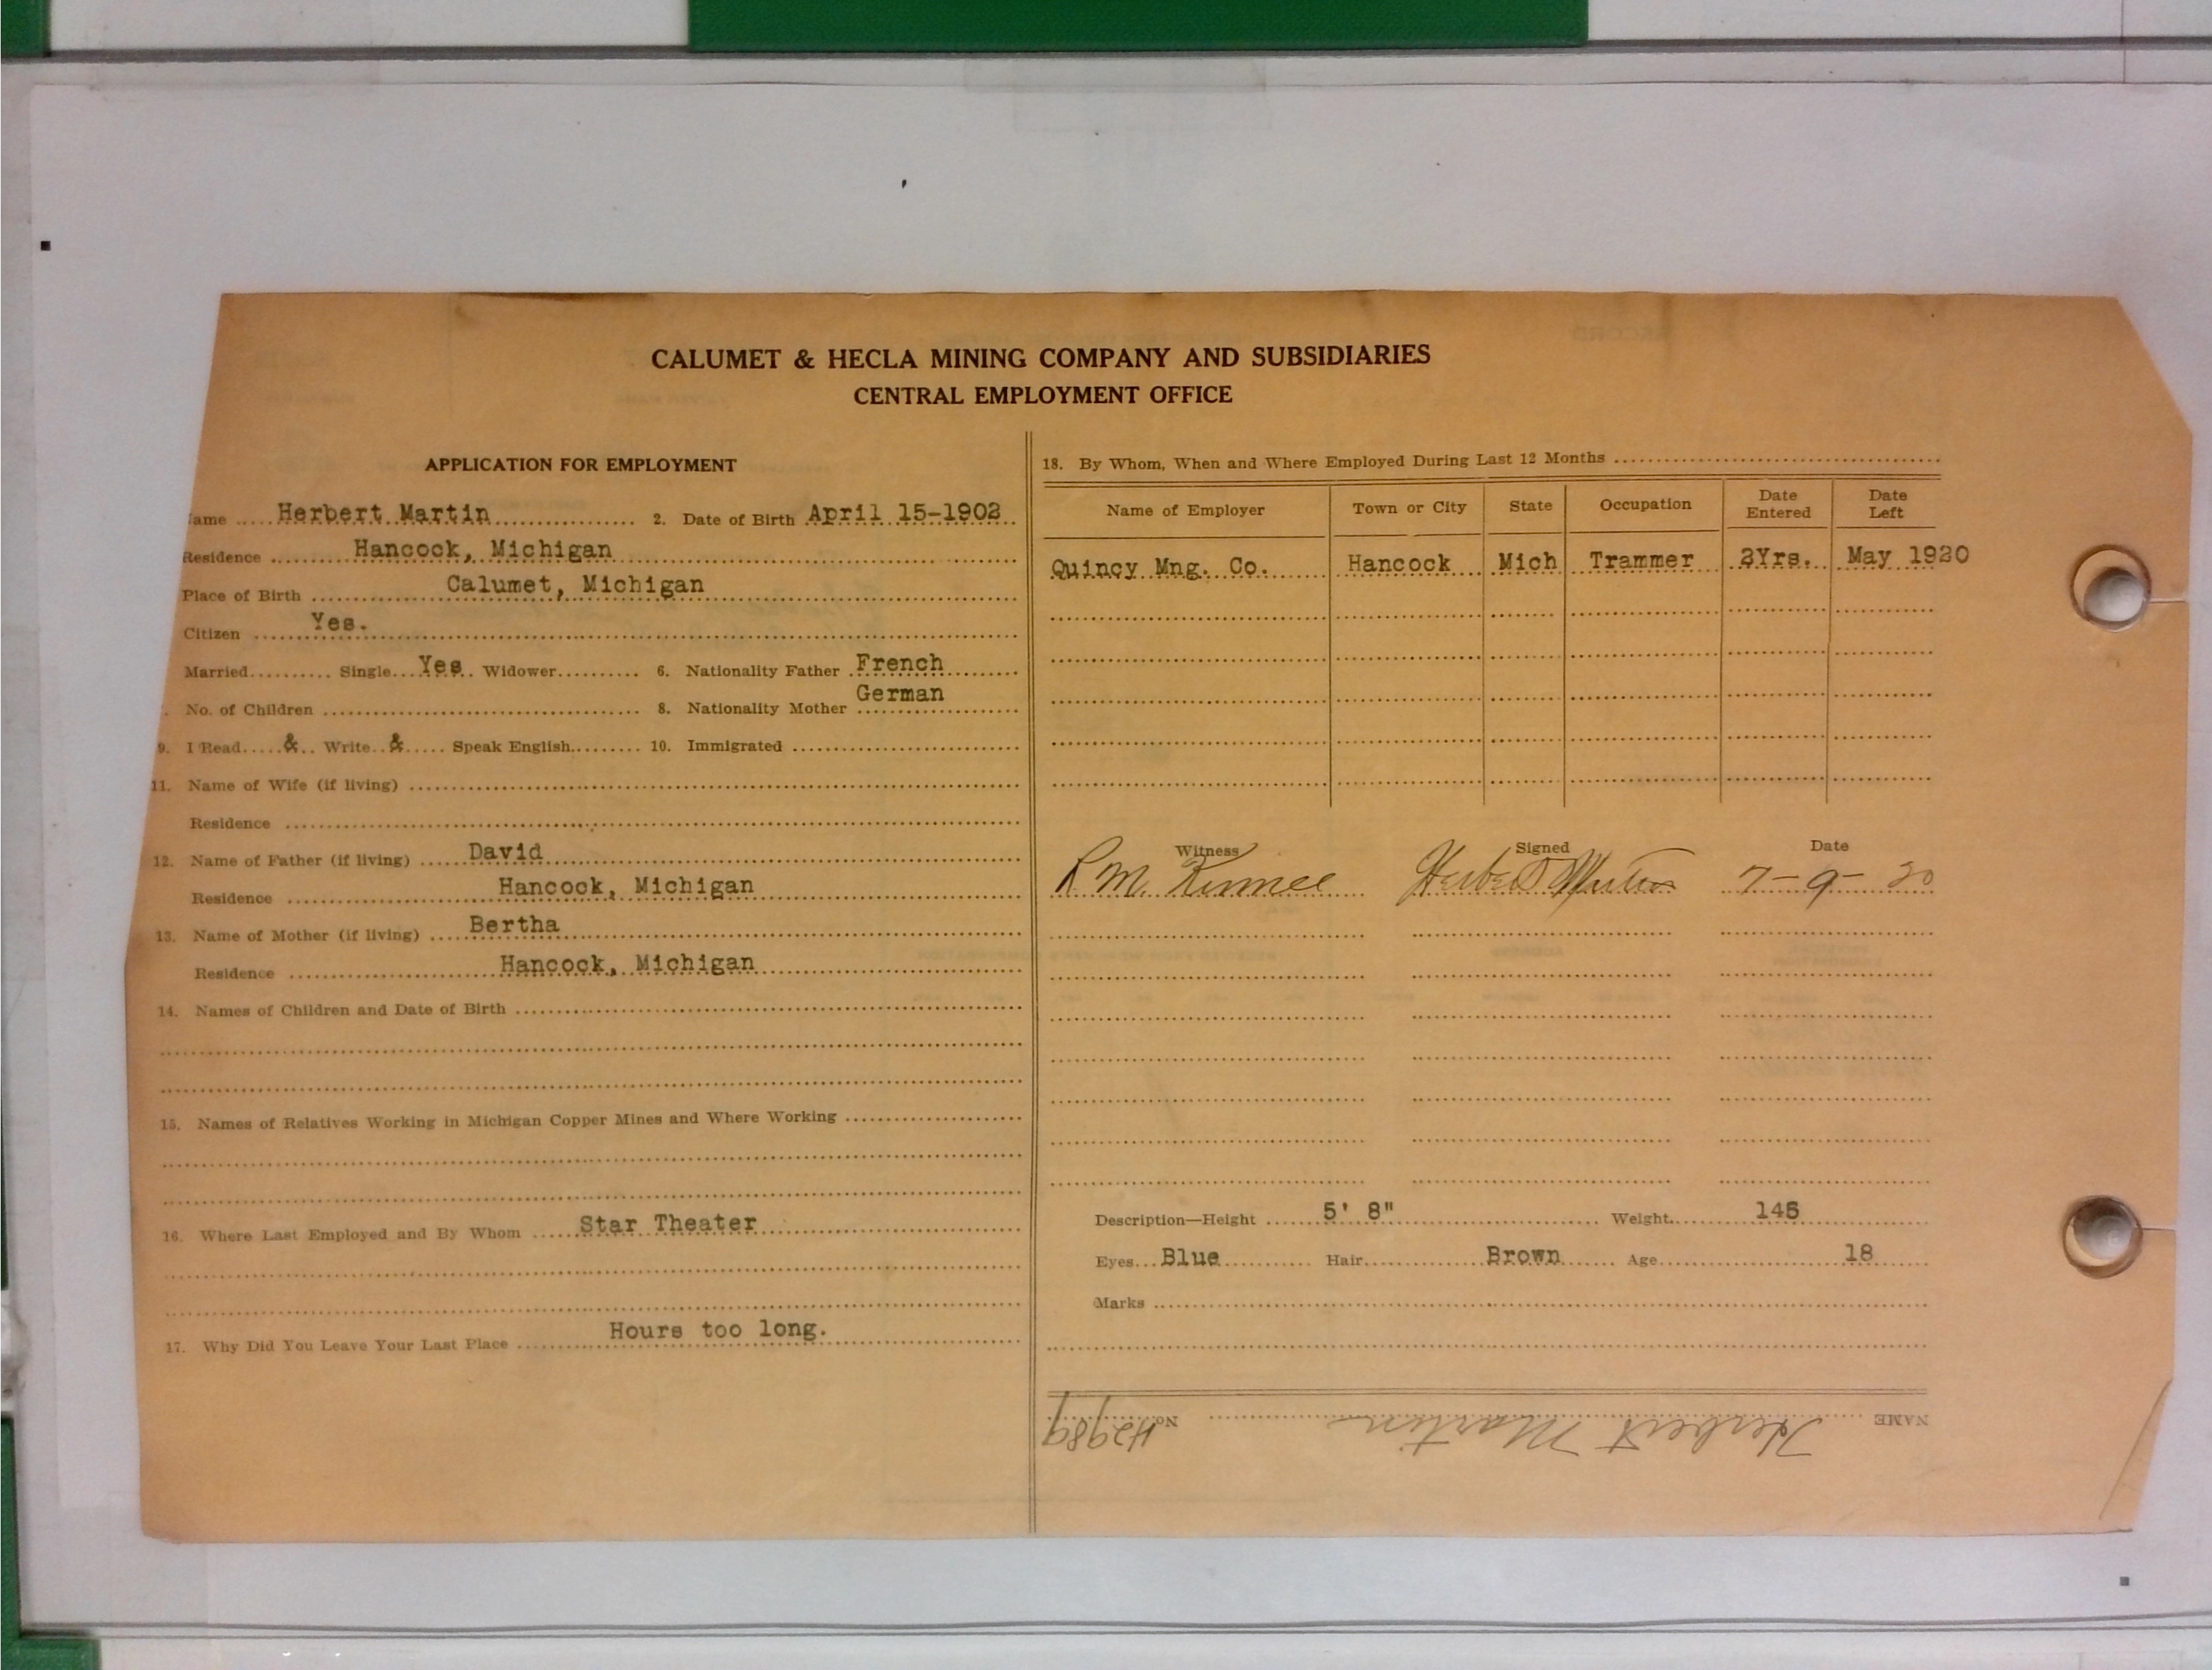 CALUMET & HECLA MINING COMPANY AND SUBSIDIARIES
CENTRAL EMPLOYMENT OFFICE
APPLICATION FOR EMPLOYMENT
ame ..... Herbert Martin ................. 2. Date of Birth April 15-1902
Residence ......... Hancock, Michigan
Place of Birth .............. Calumet, Michigan
Citizen ....... Yes.
Married.......... Single.... Yes .. Widower.......... 6. Nationality Father . French
No. of Children .......................................... 8. Nationality Mother German
9. I Read..... & .. Write.. & ..... Speak English......... 10. Immigrated
11. Name of Wife (if living)
Residence
12. Name of Father (if living) ..... David
Residence ............ Hancock, Michigan
13. Name of Mother (if living) .... Bertha
Residence ............ Hancock, Michigan
14. Names of Children and Date of Birth
15. Names of Relatives Working in Michigan Copper Mines and Where Working
16. Where Last Employed and By Whom ...... Star Theater
17. Why Did You Leave Your Last Place ........ Hours too long.
18. By Whom, When and Where Employed During Last 12 Months
Name of Employer Town or City State Occupation Date Entered Date Left
Quincy Mng. Co. Hancock Mich Trammer 2Yrs. May 1920
Witness Signed Date
Herbert Martin 7-9-20
Description—Height ...... 5' 8" ........ Weight..... 145
Eyes... Blue ........ Hair........ Brown ...... Age........ 18
Marks
NAME Herbert Martin No. 42989